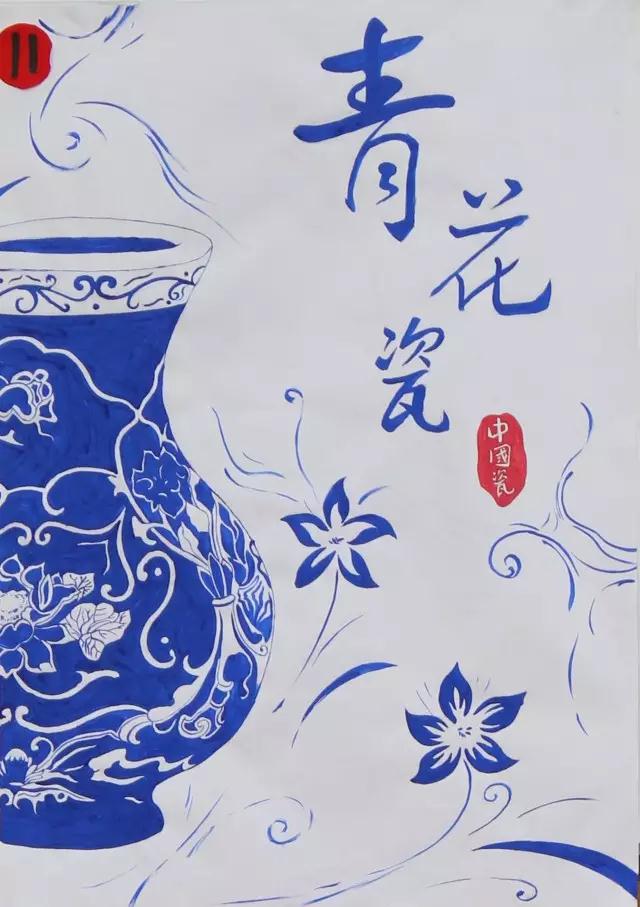 11
青花瓷
中國瓷